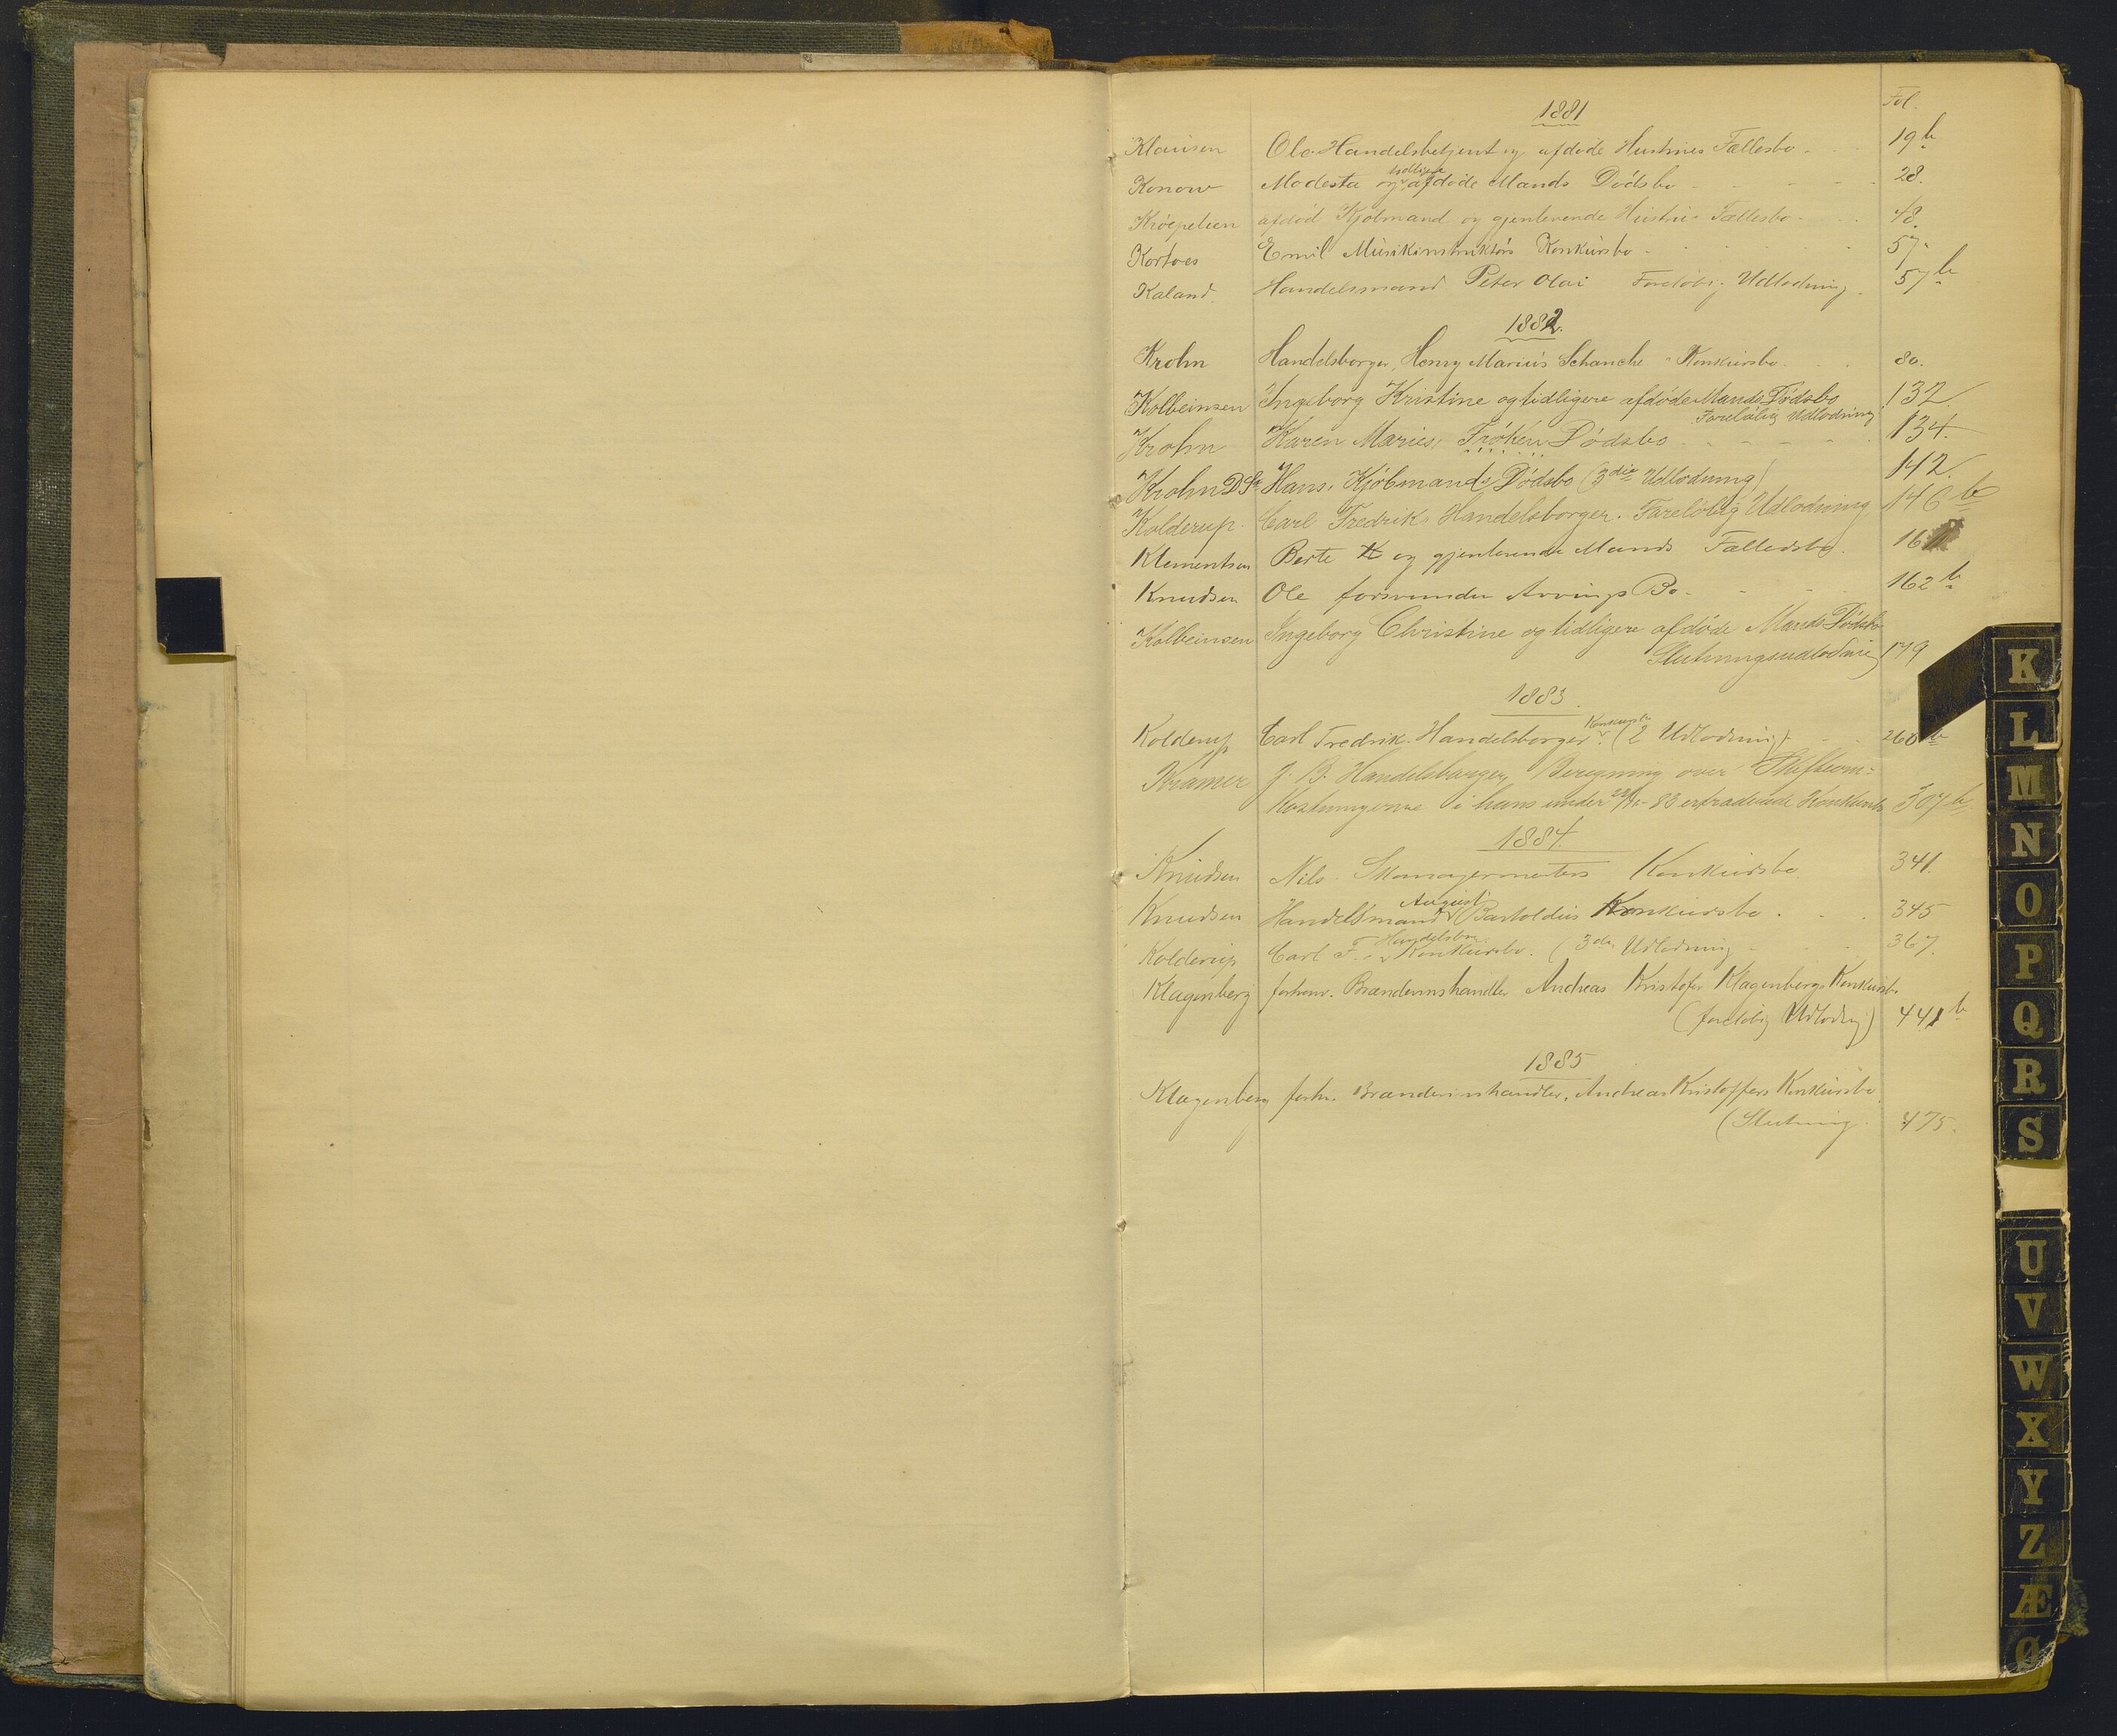 Fol.
1881
Klausen Ole Handelsbetjent og afdøde Hustrues Fællesbo 19 b
Konow Modesta og tidligere afdøde Mands Dødsbo 28.
Krøepelien afdød Kjøbmand og gjenlevende Hustrus Fællesbo 48
Kortoes Emil Musikinstruktørs Konkursbo 57
Kaland Handelsmand Peter Olai Foreløbig Udlodning 57 b
1882.
Krohn Handelsborger, Henry Marius Schanche Konkursbo 80.
Kolbeinsen Ingeborg Kristine og tidligere afdøde Mands Dødsbo 132
Foreløbig Udlodning
Krohn Karen Maries, Frøken Dødsbo 134.
Krohn DS Hans, Kjøbmands Dødsbo (3die Udlodning) 142.
Kolderup Carl Fredrik Handelsborger. Foreløbig Udlodning 146 b
Klementsen Berte K og gjenlevende Mands Fælledsbo. 16
Knudsen Ole forsvunden Arvings Bo. 162 b
Kolbeinsen Ingeborg Christine og tidligere afdøde Mands Dødsbo
Slutningsudlodning 179
1883.
Kolderup Carl Fredrik. Handelsborger. Konkursbo (2 Udlodning) 260 b
Kramer J. B. Handelsborger, Beregning over Skifteom-
kostningerne i hans under 83 extraderede Konkursbo 307 b.
1884.
Knudsen Nils Skomagermesters Konkursbo. 341.
Knudsen Handelsmand August Bartoldus Konkursbo. 345
Kolderup Carl F. Handelsbor. Konkursbo. (3die Udlodning 367.
Klagenberg forhenv. Brændevinshandler Andreas Kristofer Klagenbergs Konkursbo
(foreløbig Udlodng) 441 b
1885
Klagenberg forhv. Brændevinshandler, Andreas Kristoffers Konkursbo.
(Slutning. 475.
K
L
M
N
O
P
Q
R
S
U
V
W
X
Y
Z
Æ
Ø